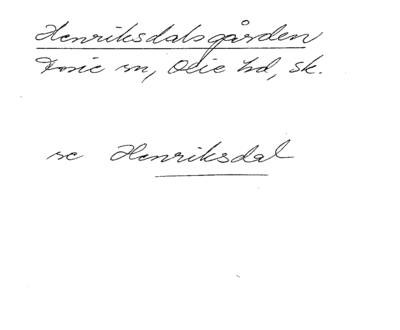 Henriksdalsgården
Fosie sn, Oxie hd, Sk.
se Henriksdal